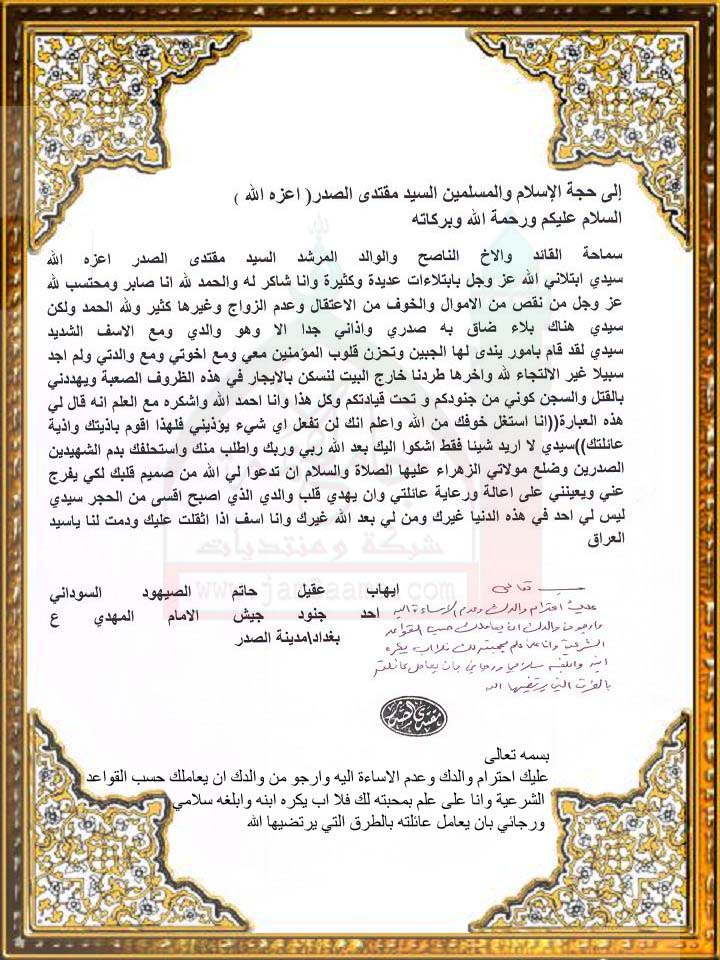 إلى حجة الإسلام والمسلمين السيد مقتدى الصدر( اعزه الله )
السلام عليكم ورحمة الله وبركاته
سماحة القائد والاخ الناصح والوالد المرشد السيد مقتدى الصدر اعزه الله
سيدي ابتلاني الله عز وجل بابتلاءات عديدة وكثيرة وانا شاكر له والحمد لله انا صابر ومحتسب لله
عز وجل من نقص من الاموال والخوف من الاعتقال وعدم الزواج وغيرها كثير ولله الحمد ولكن
سيدي هناك بلاء ضاق به صدري واذاني جدا الا وهو والدي ومع الاسف الشديد
سيدي لقد قام بامور يندى لها الجبين وتحزن قلوب المؤمنين معي ومع اخوتي ومع والدتي ولم اجد
سبيلا غير الالتجاء لله واخرها طردنا خارج البيت لنسكن بالايجار في هذه الظروف الصعبة ويهددني
بالقتل والسجن كوني من جنودكم و تحت قيادتكم وكل هذا وانا احمد الله واشكره مع العلم انه قال لي
هذه العبارة((انا استغل خوفك من الله واعلم انك لن تفعل اي شيء يؤذيني فلهذا اقوم باذيتك واذية
عائلتك))سيدي لا اريد شيئا فقط اشكوا اليك بعد الله ربي وربك واطلب منك واستحلفك بدم الشهيدين
الصدرين وضلع مولاتي الزهراء عليها الصلاة والسلام ان تدعوا لي الله من صميم قلبك لكي يفرج
عني ويعينني على اعالة ورعاية عائلتي وان يهدي قلب والدي الذي اصبح اقسى من الحجر سيدي
ليس لي احد في هذه الدنيا غيرك ومن لي بعد الله غيرك وانا اسف اذا اثقلت عليك ودمت لنا ياسيد
العراق
شركة ومنتديات
إيهاب عقيل حاتم الصيهود السوداني
احد جنود جيش الامام المهدي ع
بغداد\مدينة الصدر
بسمه تعالى
عليك احترام والدك وعدم الاساءة اليه
وارجو من والدك ان يعاملك حسب القواعد
الشرعية وانا على علم بمحبته لك فلا اب يكره
ابنه وابلغه سلامي ورجائي بان يعامل عائلته
بالطرق التي يرتضيها الله
مقتدى الصدر
بسمه تعالى
عليك احترام والدك وعدم الاساءة اليه وارجو من والدك ان يعاملك حسب القواعد
الشرعية وانا على علم بمحبته لك فلا اب يكره ابنه وابلغه سلامي
ورجائي بان يعامل عائلته بالطرق التي يرتضيها الله